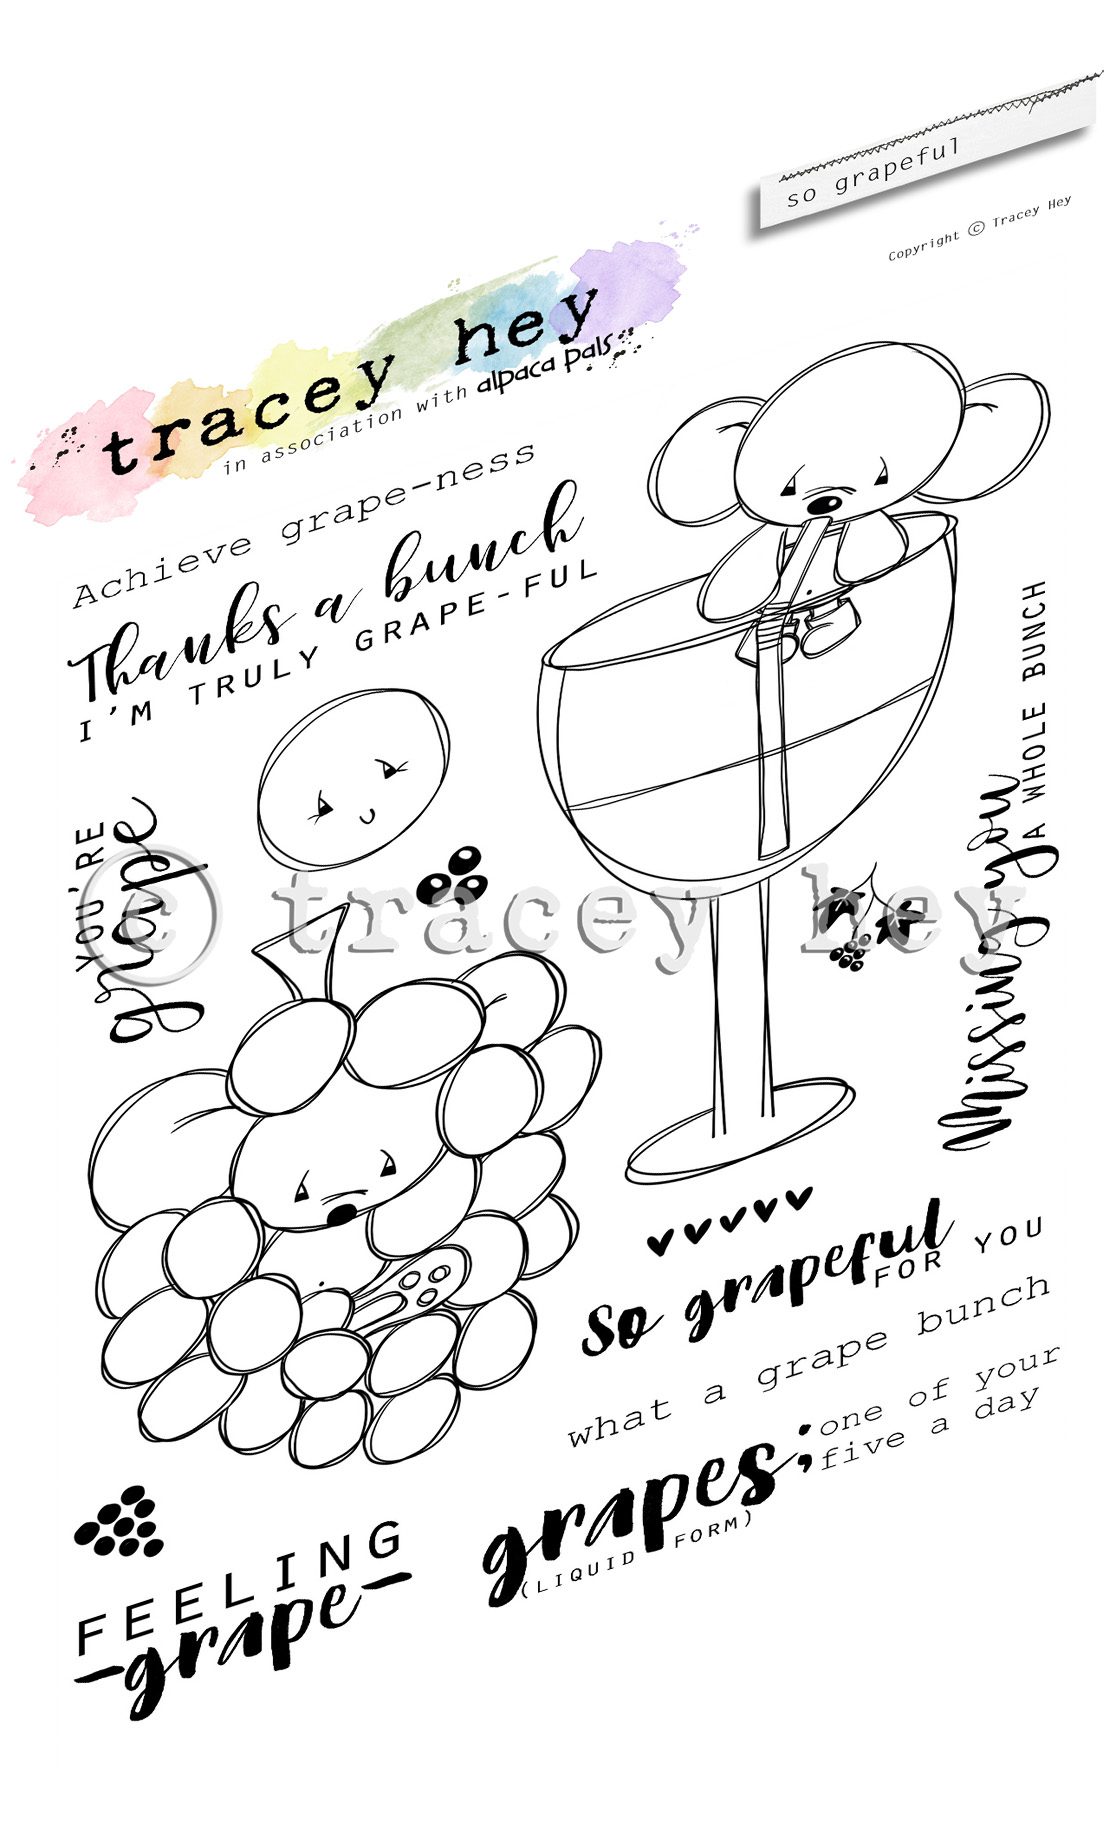 so grapeful
Copyright © Tracey Hey
tracey hey
in association with alpaca pals
Achieve grape-ness
Thanks a bunch
I'M TRULY GRAPE-FUL
YOU'RE
grape
Missing you
A WHOLE BUNCH
© tracey hey
So grapeful
FOR YOU
what a grape bunch
grapes;
one of your
five a day
(LIQUID FORM)
FEELING
-grape-